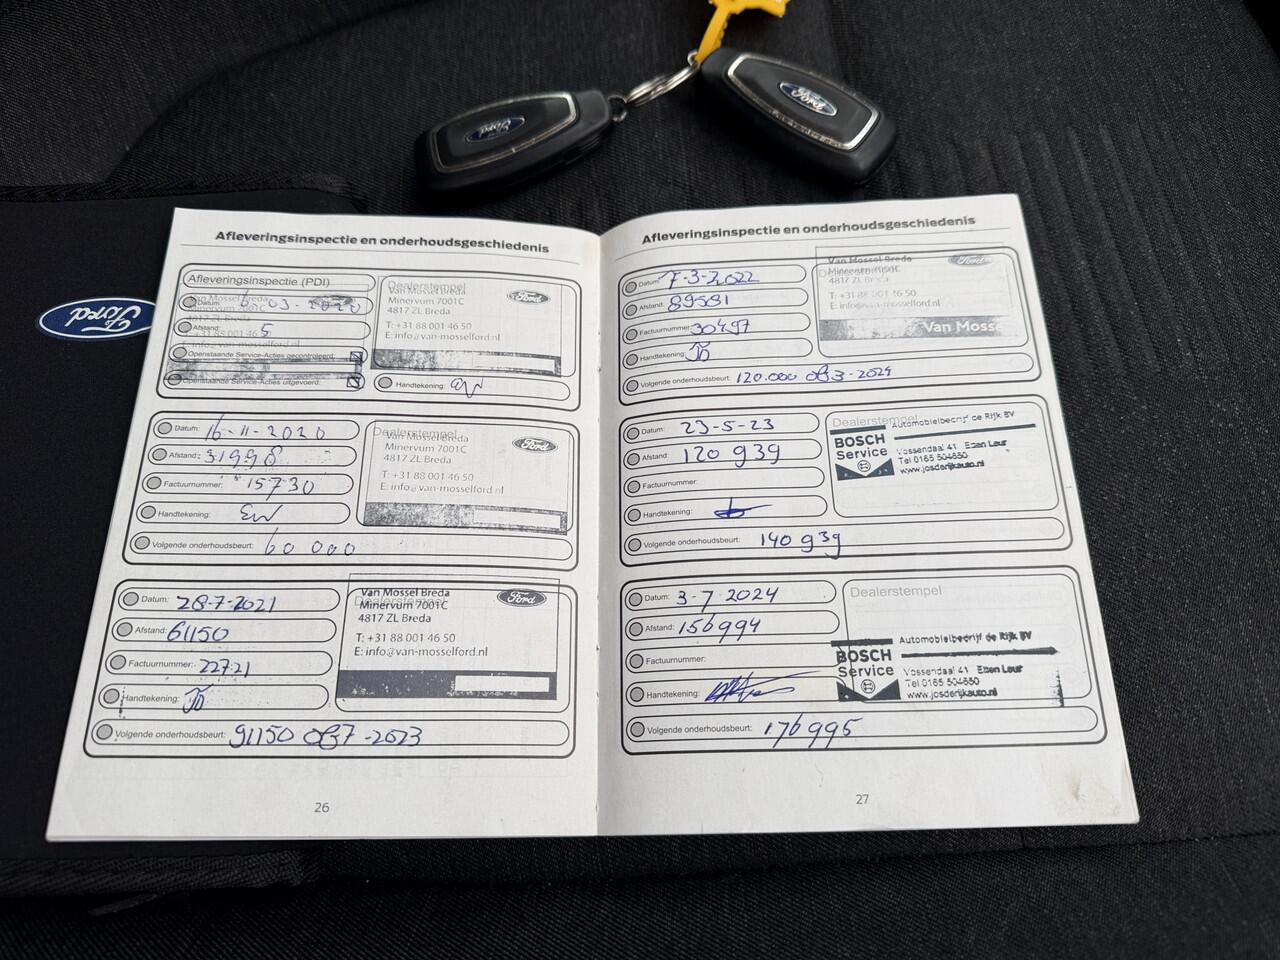 Ford
Ford
Ford
Afleveringsinspectie en onderhoudsgeschiedenis
Afleveringsinspectie (PDI)
Datum: 6-03-2020
Afstand: 5
Openstaande Service-Acties gecontroleerd:
Openstaande Service-Acties uitgevoerd:
Dealerstempel
Van Mossel Breda
Minervum 7001C
4817 ZL Breda
T: +31 88 001 46 50
E: info@van-mosselford.nl
Ford
Handtekening:
Datum: 16-11-2020
Afstand: 31998
Factuurnummer: 15730
Handtekening:
Volgende onderhoudsbeurt: 60 000
Dealerstempel
Van Mossel Breda
Minervum 7001C
4817 ZL Breda
T: +31 88 001 46 50
E: info@van-mosselford.nl
Ford
Datum: 28-7-2021
Afstand: 61150
Factuurnummer: 22721
Handtekening:
Volgende onderhoudsbeurt: 91150 OF 7-2023
Dealerstempel
Van Mossel Breda
Minervum 7001C
4817 ZL Breda
T: +31 88 001 46 50
E: info@van-mosselford.nl
Ford
26
Afleveringsinspectie en onderhoudsgeschiedenis
Datum: 7-3-2022
Afstand: 89581
Factuurnummer: 30497
Handtekening:
Volgende onderhoudsbeurt: 120.000 OF 3-2024
Van Mossel Breda
Minervum 7001C
4817 ZL Breda
T: +31 88 001 46 50
Ford
Van Mosse
Datum: 23-5-23
Afstand: 120 939
Factuurnummer:
Handtekening:
Volgende onderhoudsbeurt: 140 939
Dealerstempel
BOSCH
Service
Automobielbedrijf de Rijk BV
Vossendaal 41 Etten Leur
Tel 0165 504650
www.josderijkauto.nl
Datum: 3-7-2024
Afstand: 156994
Factuurnummer:
Handtekening:
Volgende onderhoudsbeurt: 176995
Dealerstempel
BOSCH
Service
Automobielbedrijf de Rijk BV
Vossendaal 41 Etten Leur
Tel 0165 504650
www.josderijkauto.nl
27